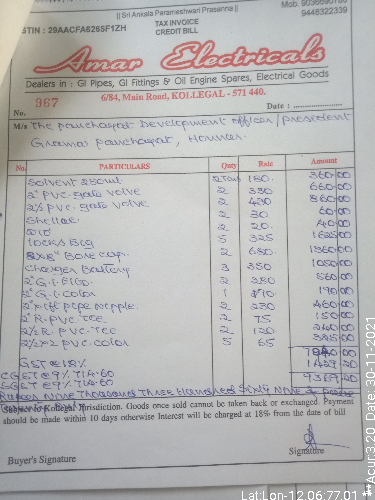 || Sri Ankala Parameshwari Prasanna ||
Mob. 9036690780
9448322339
GSTIN : 29AACFA6265F1ZH
TAX INVOICE
CREDIT BILL
Amar Electricals
Dealers in : GI Pipes, GI Fittings & Oil Engine Spares, Electrical Goods
6/84, Main Road, KOLLEGAL - 571 440.
No. 967 Date :
M/s The panchayat Development officer/president
Grama panchayat, Honnur
No. PARTICULARS Qnty Rate Amount
Solvent 250ml 2 180. 360 00
2" PVC gate valve 2 330 660 00
2½ PVC gate valve 2 430 860 00
Shellac 2 30 60 00
2 20. 40 00
Locks Big 5 325 1625 00
8x8" Bore cap. 2 680. 1360 00
Charger Battery 3 350 1050 00
2" G.I. Elbo. 2 280 560 00
2" G.I. color 1 190 190 00
2" pipe nipple 2 230 460 00
2" R. PVC. TEE 2 75 150 00
2½ R. PVC. TEE 2 120 240 00
2½x2 PVC. color 5 65 325 00
7940 00
GST @ 18% 1429 20
CGST @ 9% 714-60 9369-20
SGST @ 9% 714-60
Rupees Nine Thousand Three Hundred Sixty Nine & paise
Subject to Kollegal Jurisdiction. Goods once sold cannot be taken back or exchanged. Payment
should be made within 10 days otherwise Interest will be charged at 18% from the date of bill
Buyer's Signature Signature
Lat:Lon-12.06:77.01
**Acur:3.20 Date: 30-11-2021